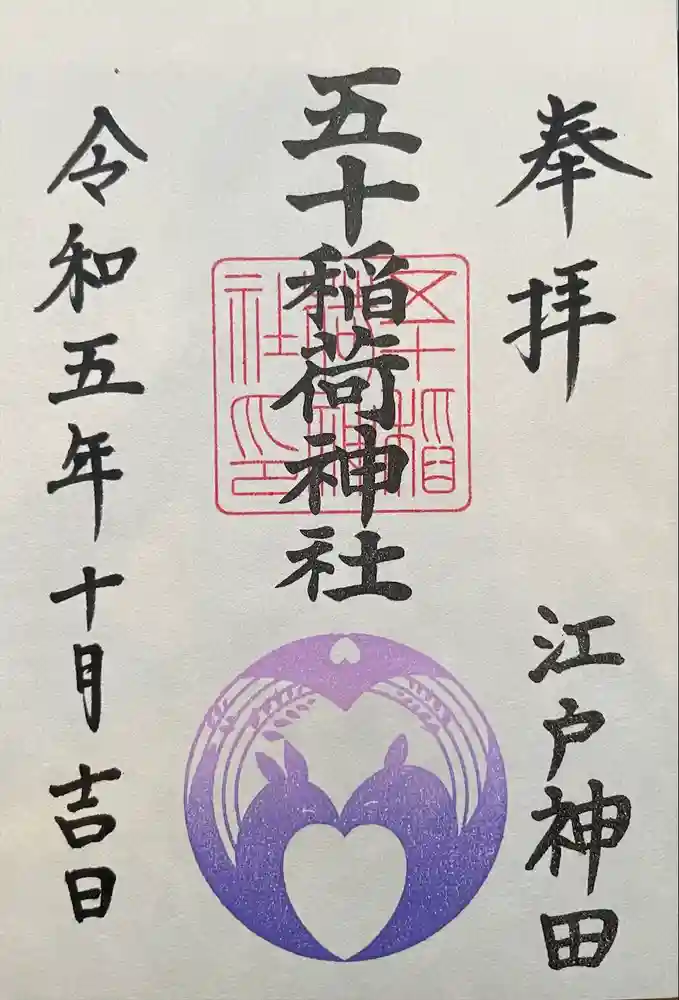 奉拝
江戸神田
五十稲荷神社
五十稲荷神社印
令和五年十月吉日